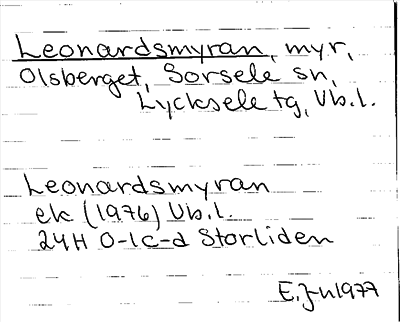 Leonardsmyran, myr,
Olsberget, Sorsele sn,
Lycksele tg, Vb.l.
Leonardsmyran
ek (1976) Vb.l.
24H 0-1c-d Storliden
E.J-n1977